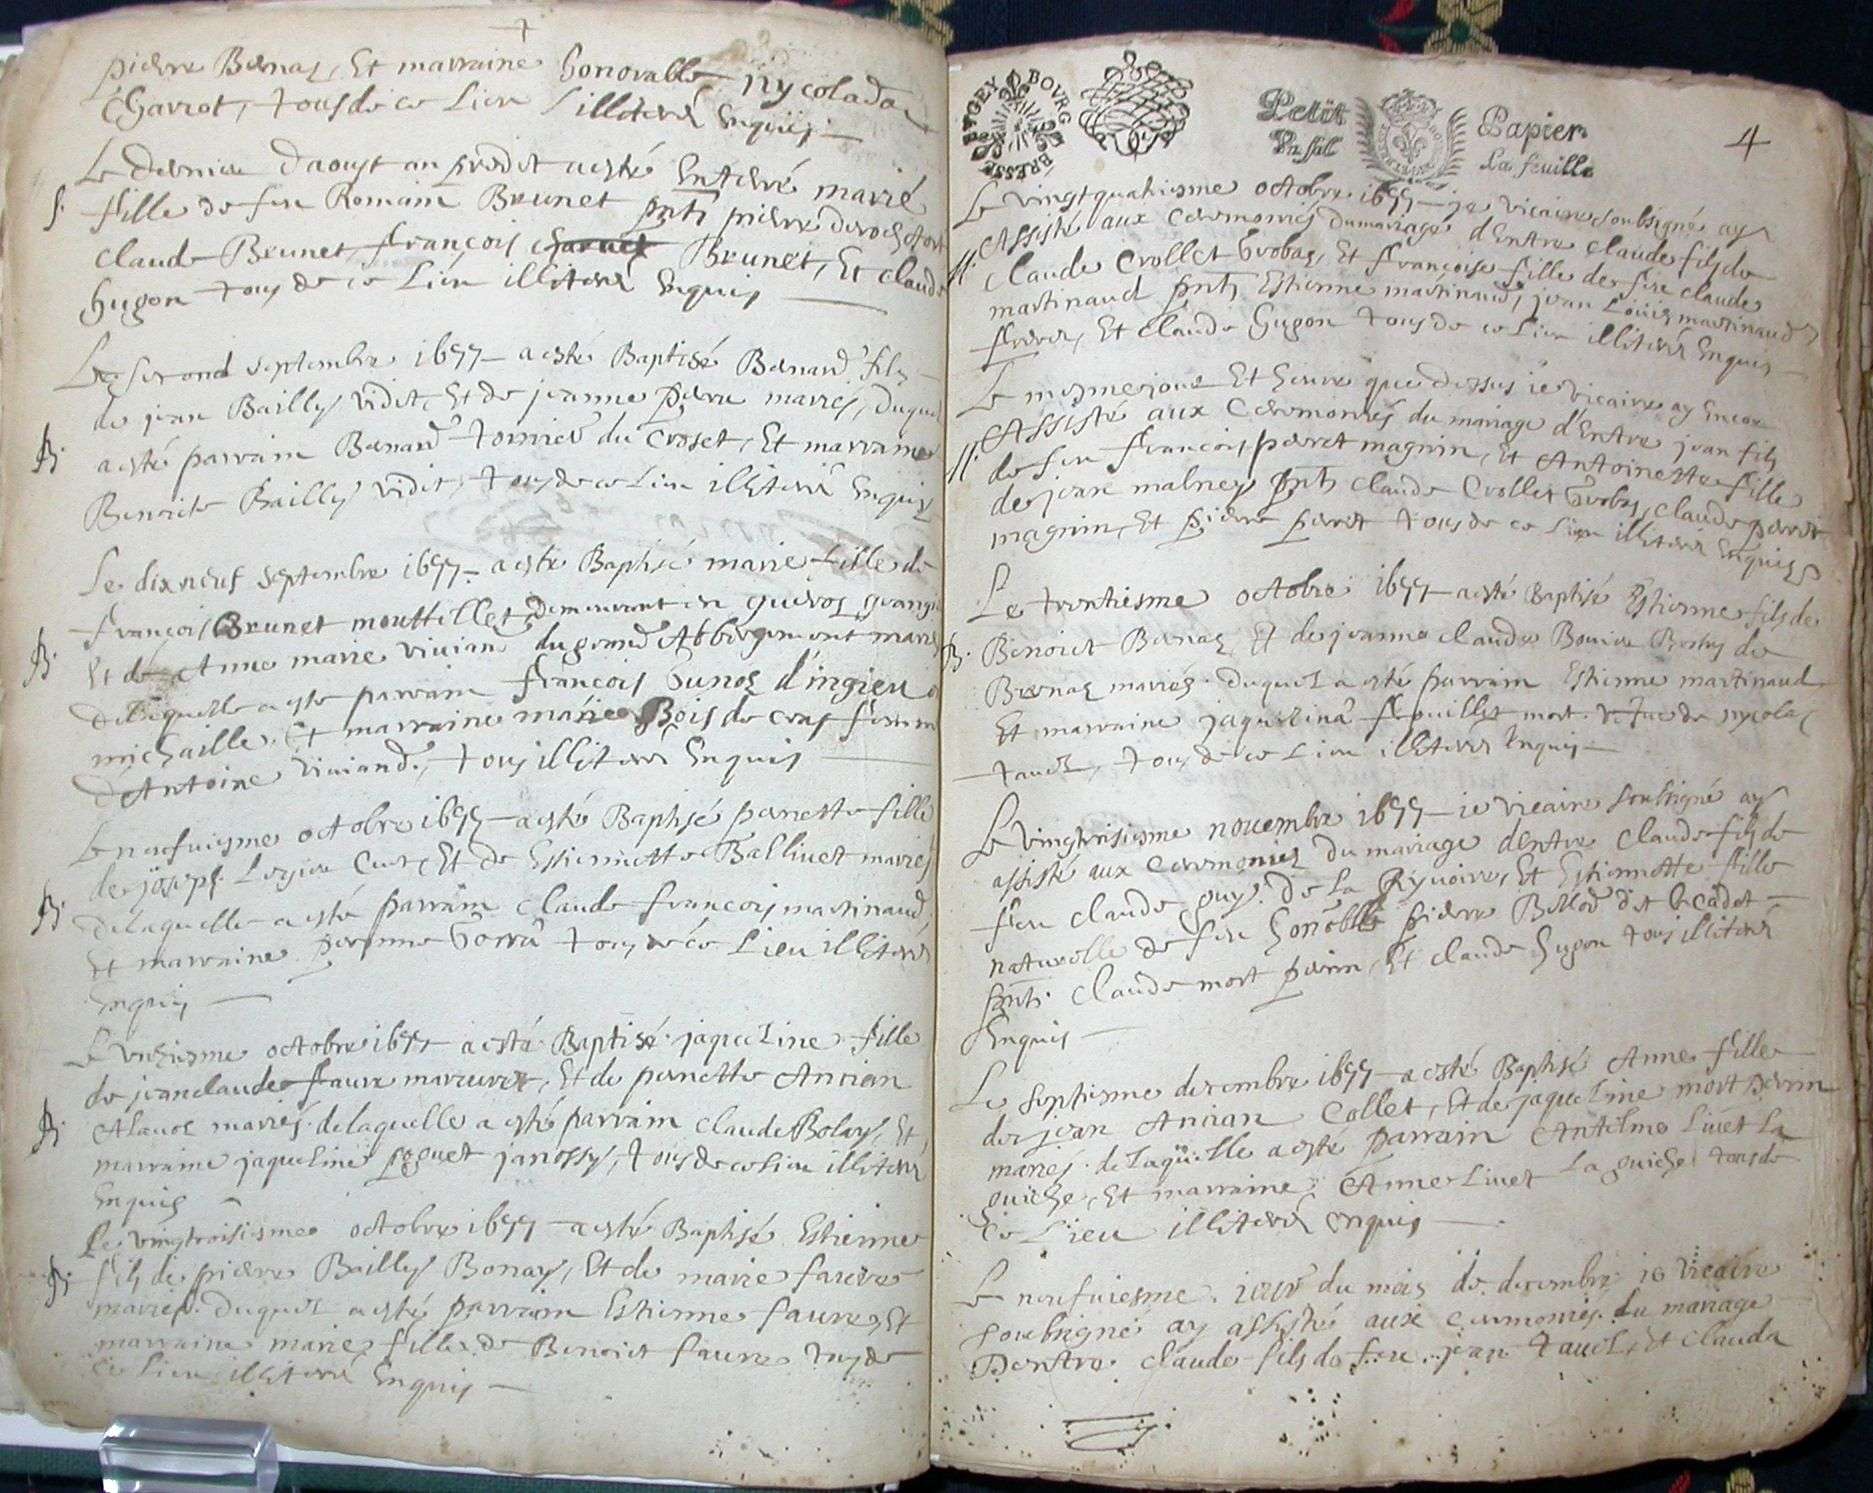 pierre Bernaz, Et marraine honorable nycolada
Charrot, tous de ce Lieu illiterés Enquis
Le dernier daoust an predit a esté Enterré marie
S. fille de feu Romain Brunet pnts pierre derochefort
claude Brunet, françois Brunet, Et claude
hugon tous de ce Lieu illiterés Enquis
Le second septembre 1677 a esté Baptisé Bernard fils
de jean Bailly vidit, Et de jeanne perru mariés, duquel
B. a esté parrain Bernard tornier du Croset, Et marraine
Benoite Bailly vidit, tous de ce Lieu illiterés Enquis
Le dix neuf septembre 1677 a esté Baptisé marie fille de
françois Brunet mouttillet demeurant en
B. Et de Anne marie vivian du grand Abbergement mariés
de laquelle a esté parrain françois hunos d'ingieu
michaille Et marraine marie Bois de femme
d'Antoine viviand, tous illiterés Enquis
Le neufuiesme octobre 1677 a esté Baptisé pernette fille
de joseph Cret, Et de Estiennette Ballivet mariés
B. de laquelle a esté parrain Claude françois martinaud,
Et marraine pernne tous de ce Lieu illiterés
Enquis
Le unziesme octobre 1677 a esté Baptisé jaqueline fille
de jean claude faure Et de pernette Ancian
B. mariés de laquelle a esté parrain Claude Bolley, Et
marraine jaqueline poguet janossy, tous de ce lieu illiterés
Enquis
Le vingtroisiesme octobre 1677 a esté Baptisé Estienne
B. fils de pierre Bailly Bonay, Et de marie favre
mariés duquel a esté parrain Estienne faure, Et
marraine marie fille de Benoict faure tous de
ce Lieu illiterés Enquis
BVGEY BOVRG BRESSE
Petit Papier
Un sill La feuille
4
Le vingtquatriesme octobre 1677 je vicaire soubsigné ay
Assisté aux Ceremonies du mariage d'Entre Claude fils de
M. Claude Crollet Grobas, Et françoise fille de feu claude
martinaud pnts Estienne martinaud, jean Louis martinaud
freres, Et Claude hugon tous de ce Lieu illiterés Enquis
Le mesme jour Et heure que dessus ie vicaire ay Encor
Assisté aux Ceremonies du mariage d'Entre jean fils
M. de feu françois perret magnin, Et Antoinette fille
de jean malney pnts claude Crollet Grobas, claude perret
magnin, Et pierre perret tous de ce Lieu illiterés Enquis
Le trentiesme octobre 1677 a esté Baptisé Estienne fils de
B. Benoict Bernaz, Et de jeanne claude
Bernaz mariés duquel a esté parrain Estienne martinaud
Et marraine jaquelina mort vefue de nycolas
tavel, tous de ce Lieu illiterés Enquis
Le vingtroisiesme novembre 1677 ie vicaire soubsigné ay
assisté aux Ceremonies du mariage dEntre Claude fils de
feu claude guy de La Ryvoire, Et Estiennette fille
naturelle de feu honoble pierre Bellod dit le Cadet
pnts Claude mort perrin, Et claude hugon tous illiterés
Enquis
Le septiesme decembre 1677 a esté Baptisé Anne fille
de jean Ancian Collet, Et de jaqueline mort perrin
mariés de laquelle a esté parrain Antelme Livet La
guiche, Et marraine Anne Livet La guiche tous de
ce Lieu illiterés Enquis
Le neufuiesme jour du mois de decembre ie vicaire
soubsigné ay assisté aux Ceremonies du mariage
Dentre Claude fils de feu jean tavel, Et Clauda